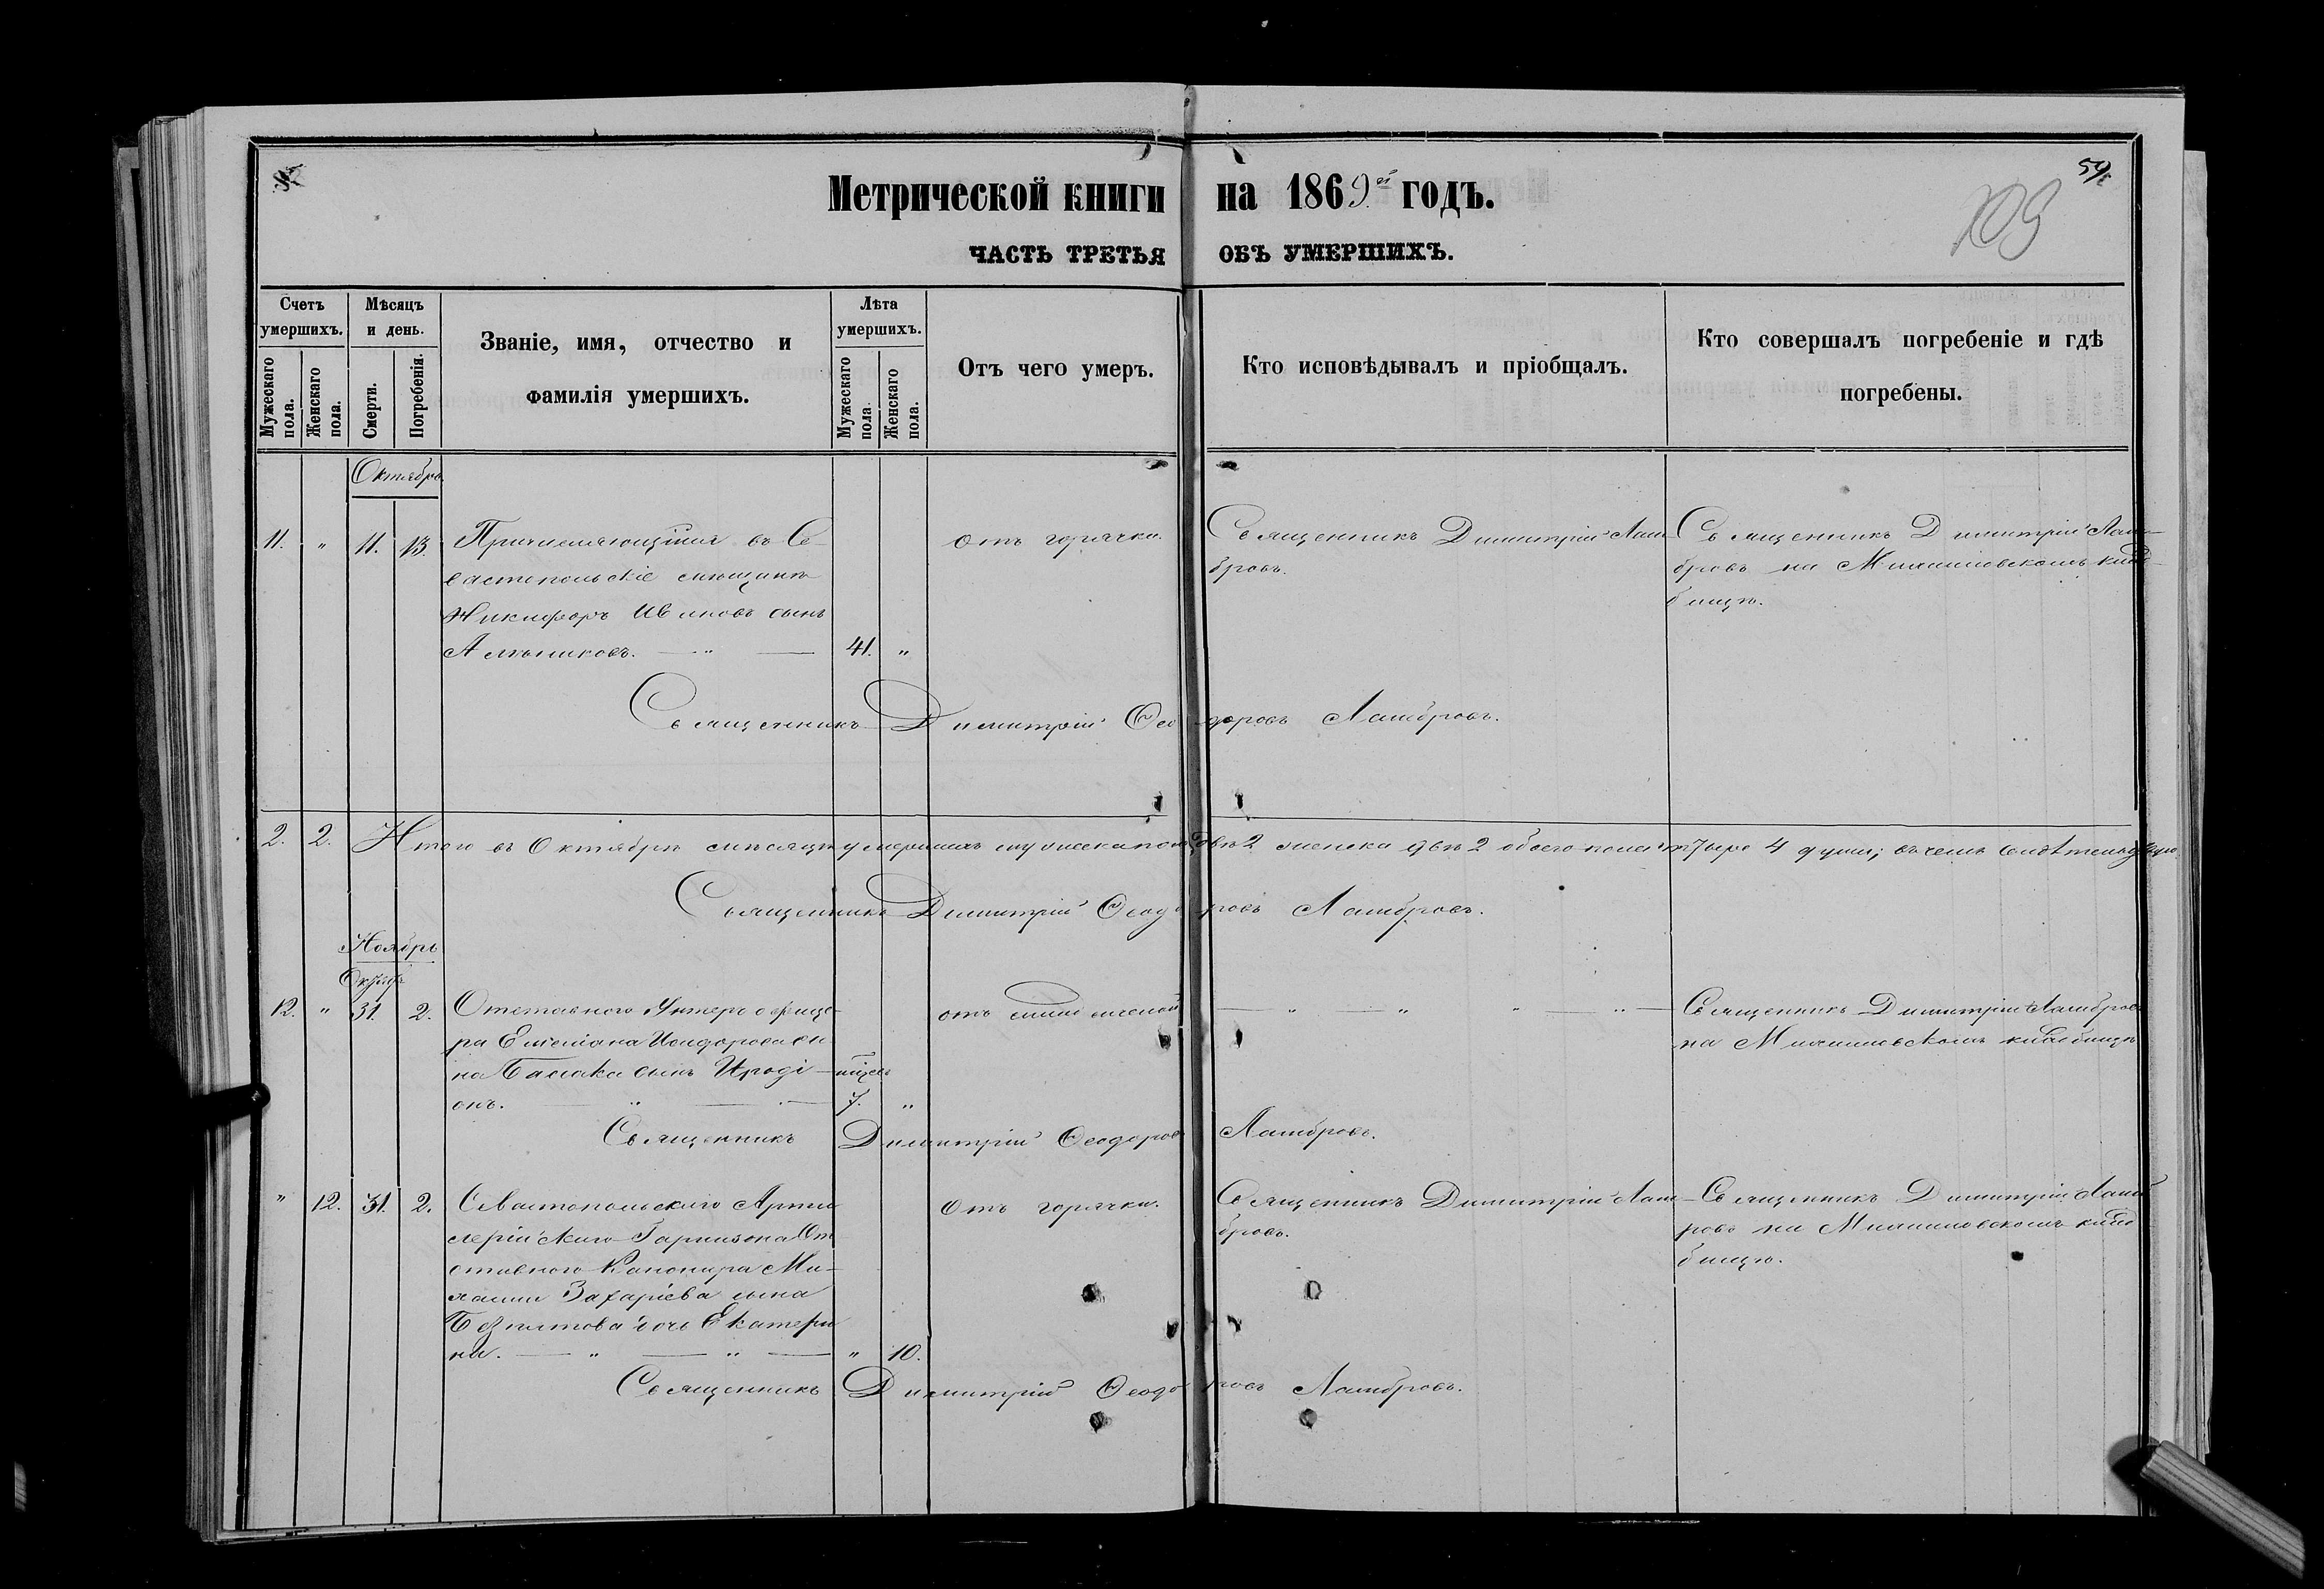 59
109
Метрической книги на 1869й годъ.
ЧАСТЬ ТРЕТЬЯ ОБЪ УМЕРШИХЪ.
Счетъ умершихъ.
Мужескаго пола.
Женскаго пола.
Мѣсяцъ и день.
Смерти.
Погребенія.
Званіе, имя, отчество и
фамилія умершихъ.
Лѣта умершихъ.
Мужескаго пола.
Женскаго пола.
Отъ чего умеръ.
Кто исповѣдывалъ и пріобщалъ.
Кто совершалъ погребеніе и гдѣ
погребены.
Октябрь
11. " 11. 13. Причисляющійся въ Се-
вастопольскіе мѣщане
Никифоръ Ивановъ сынъ
41. "
отъ горячки.
Священникъ Димитрій Лам-
бровъ.
Священникъ Димитрій Лам-
бровъ на клад
бищѣ.
Священникъ Димитрій Ѳеодоровъ Ламбровъ.
2. 2. Итого въ Октябрѣ мѣсяцѣ умершихъ мужеска пола двѣ 2 женска двѣ 2 обоего пола четыре 4 души; въ чемъ свидѣтельствую
Священникъ Димитрій Ѳеодоровъ Ламбровъ.
Ноябрь
Октябр
12. " 31. 2. Отставного Унтеръ офице-
ра сы
на сынъ Ироді-
онъ.
7. "
отъ
Священникъ Димитрій Ламбровъ
на кладбищѣ
Священникъ Димитрій Ѳеодоровъ Ламбровъ.
" 12. 31. 2. Севастопольскаго Артил
лерійскаго Гарнизона От
ставного Канонира Ми-
хаила Захаріева сына
дочь Екатери
на. " 10.
Отъ горячки.
Священникъ Димитрій Лам-
бровъ.
Священникъ Димитрій Ламб
ровъ на клад
бищѣ.
Священникъ Димитрій Ѳеодоровъ Ламбровъ.